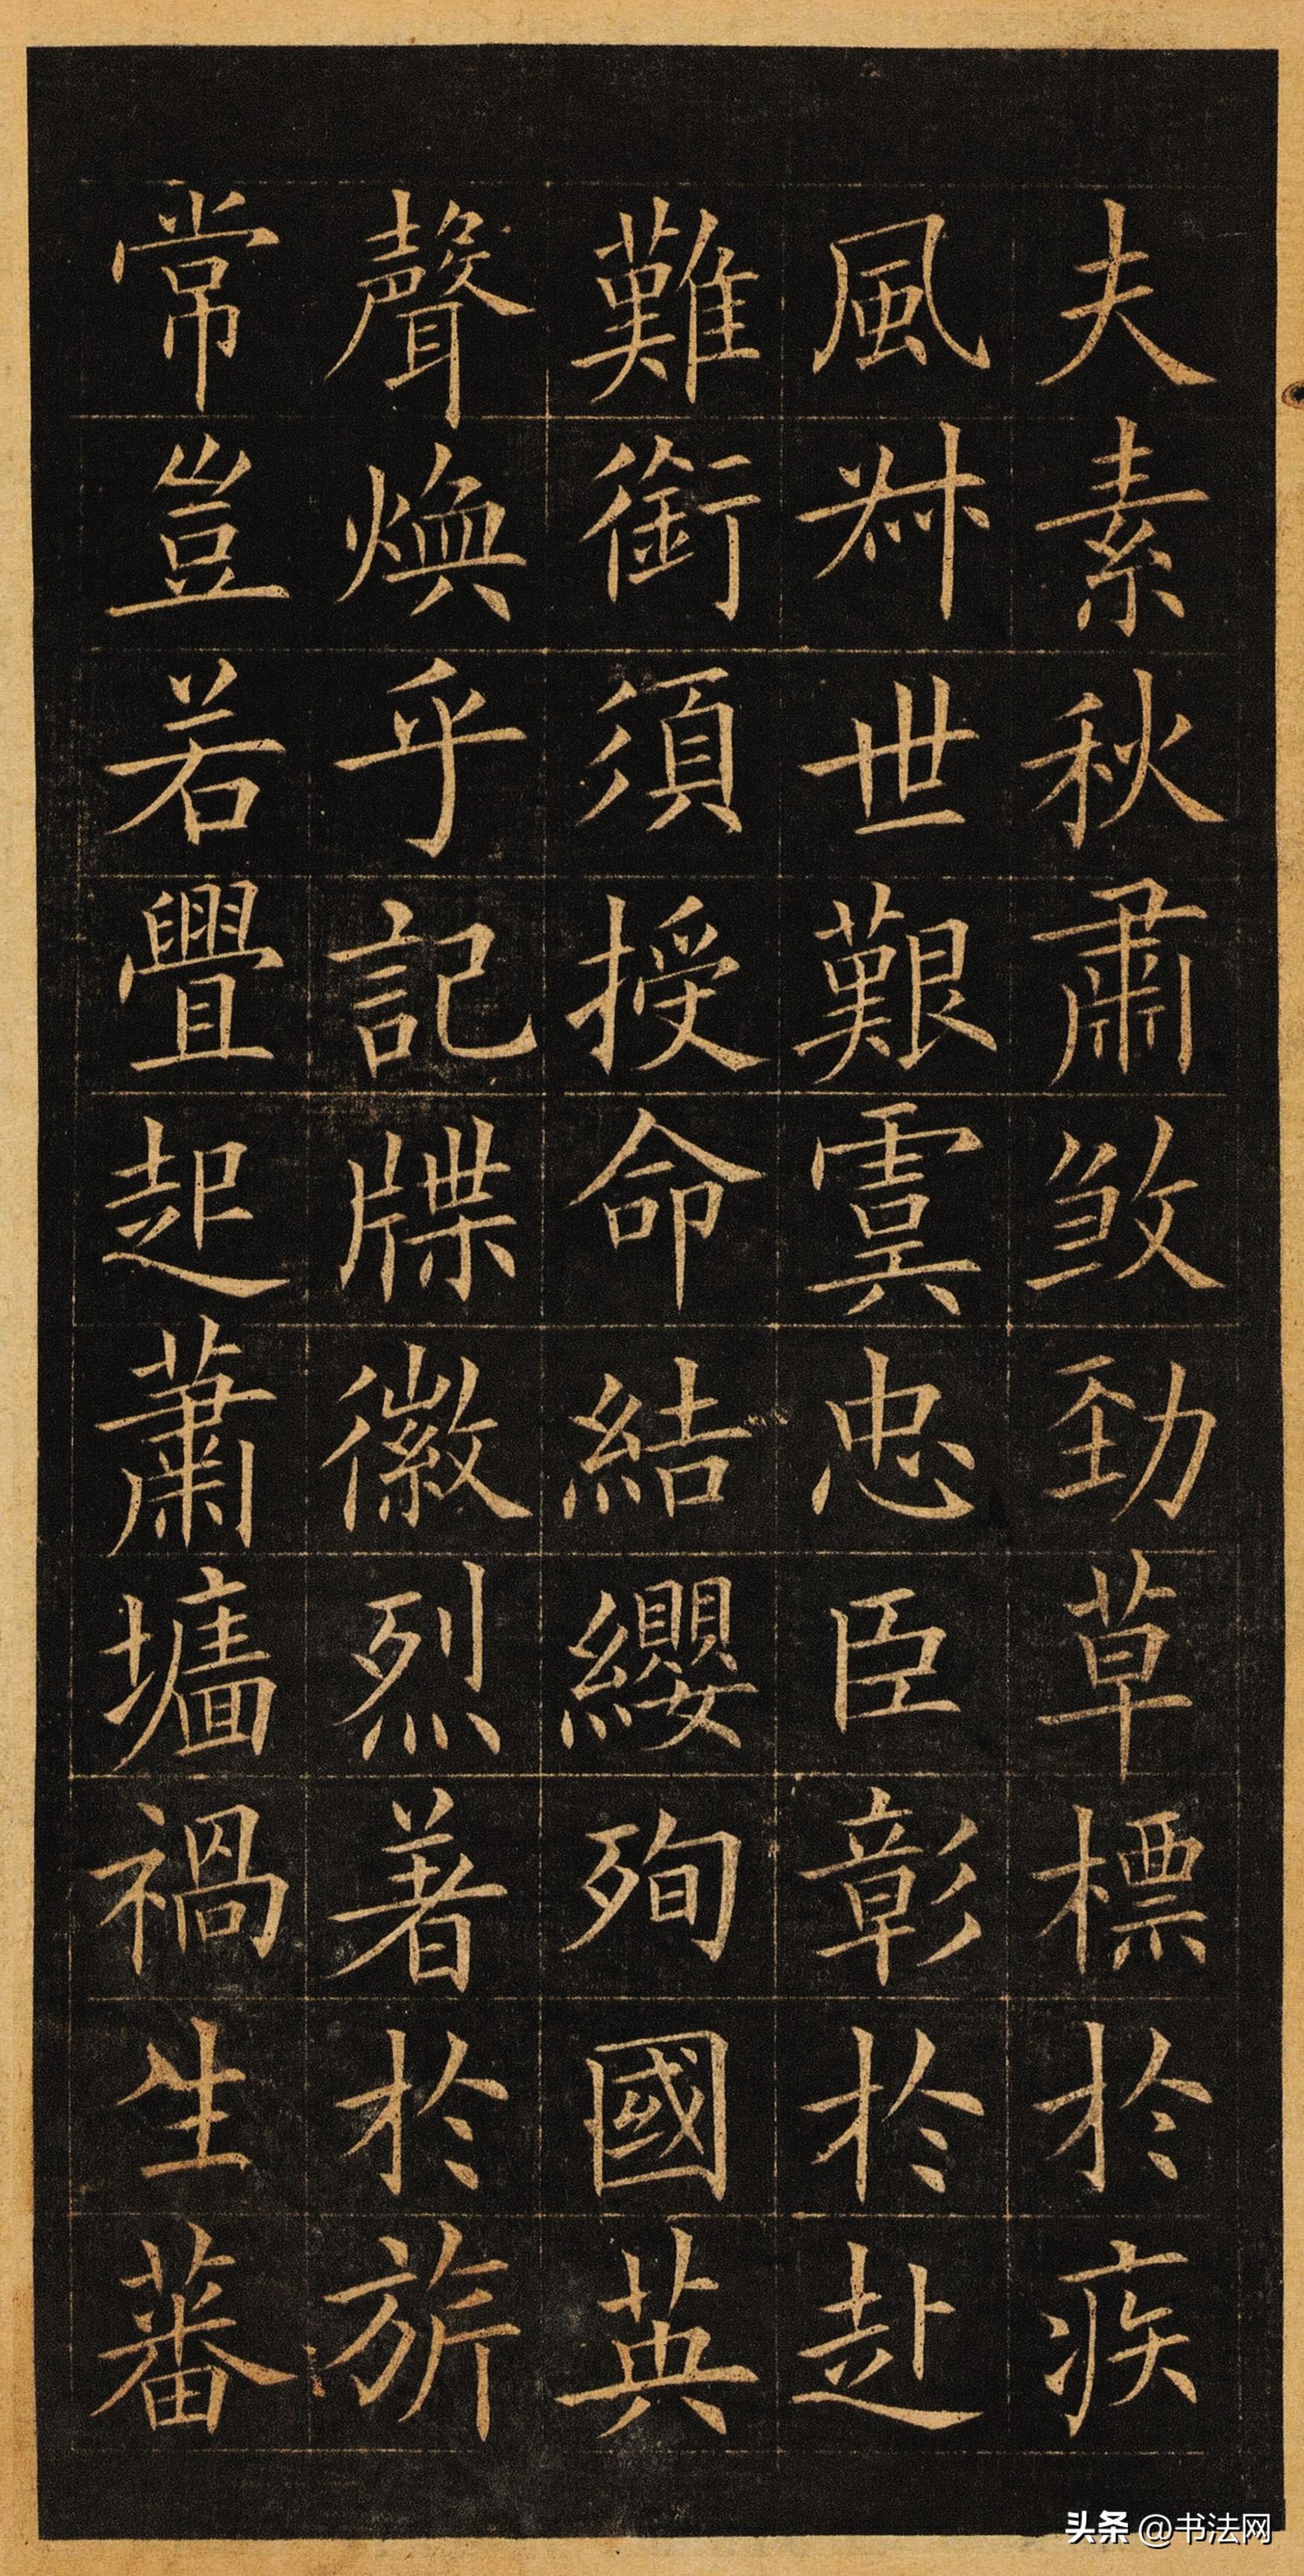 夫素秋肅煞勁草標於疾
風叶世艱虞忠臣彰於赴
難銜須授命結纓殉國英
聲煥乎記牒徽烈著於旂
常豈若釁起蕭墻禍生蕃
头条 @书法网